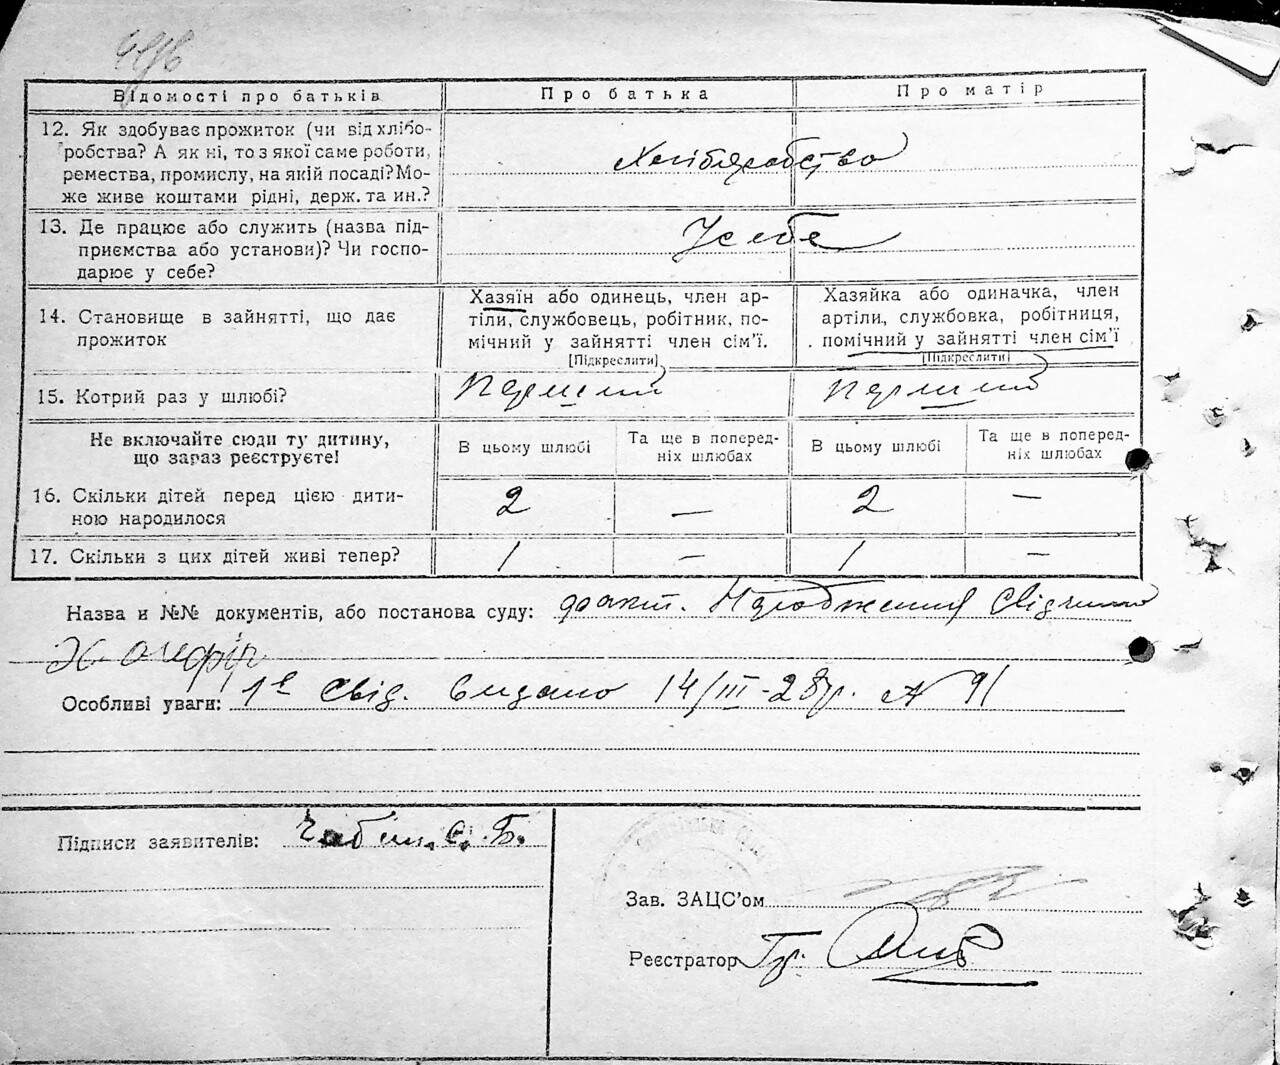 Відомості про батьків Про батька Про матір
12. Як здобуває прожиток (чи від хлібо-
робства? А як ні, то з якої саме роботи,
ремества, промислу, на якій посаді? Мо-
же живе коштами рідні, держ. та ин.?
Хлібробство
13. Де працює або служить (назва під-
приємства або установи)? Чи госпо-
дарює у себе?
У себе
14. Становище в зайнятті, що дає
прожиток
Хазяїн або одинець, член ар-
тіли, службовець, робітник, по-
мічний у зайнятті член сім'ї.
[Підкреслити]
Хазяйка або одиначка, член
артіли, службовка, робітниця,
помічний у зайнятті член сім'ї
[Підкреслити]
15. Котрий раз у шлюбі? Перший Перший
Не включайте сюди ту дитину,
що зараз реєструєте!
В цьому шлюбі
Та ще в поперед-
ніх шлюбах
В цьому шлюбі
Та ще в поперед-
ніх шлюбах
16. Скільки дітей перед цією дити-
ною народилося
2 — 2 —
17. Скільки з цих дітей живі тепер? 1 — 1 —
Назва и №№ документів, або постанова суду: факт. Народження
Особливі уваги: 1е Свід. видано 14/III-28р. № 91
Підписи заявителів:
Зав. ЗАЦС'ом
Реєстратор